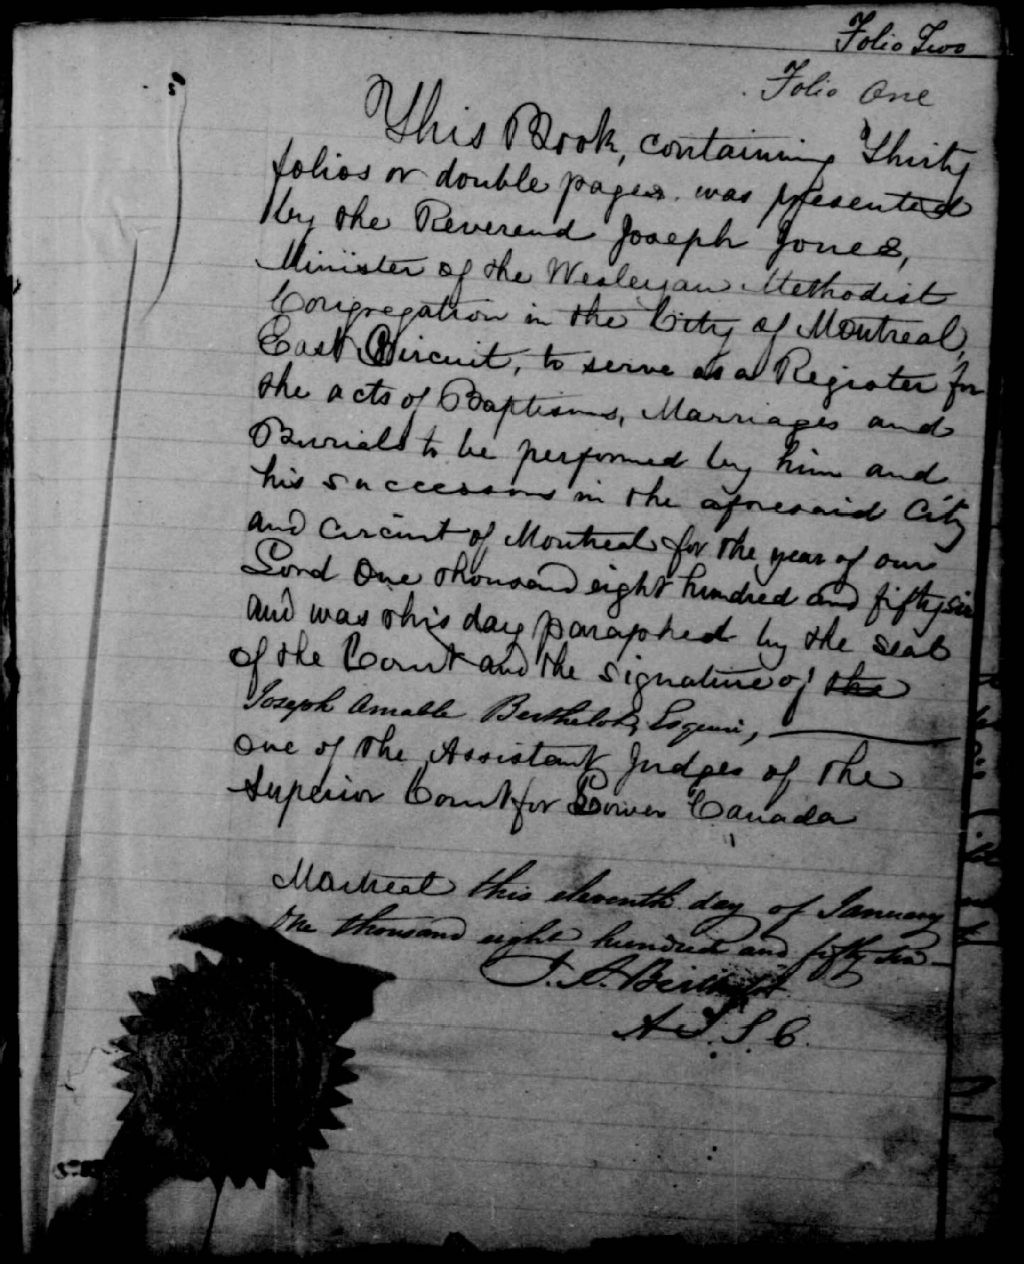 Folio Two
Folio One
This Book, containing Thirty
folios or double pages was presented
by the Reverend Joseph Jones,
Minister of the Wesleyan Methodist
Congregation in the City of Montreal,
East Circuit, to serve as a Register for
the acts of Baptisms, Marriages and
Burials to be performed by him and
his successors in the aforesaid City
and circuit of Montreal for the year of our
Lord One thousand eight hundred and fifty six
and was this day paraphed by the seal
of the Court and the signature of the
Joseph Amable Berthelot, Esquire,
one of the Assistant Judges of the
Superior Court for Lower Canada
Montreal this eleventh day of January
One thousand eight hundred and fifty six
J. A. Berthelot
A. J. S. C.